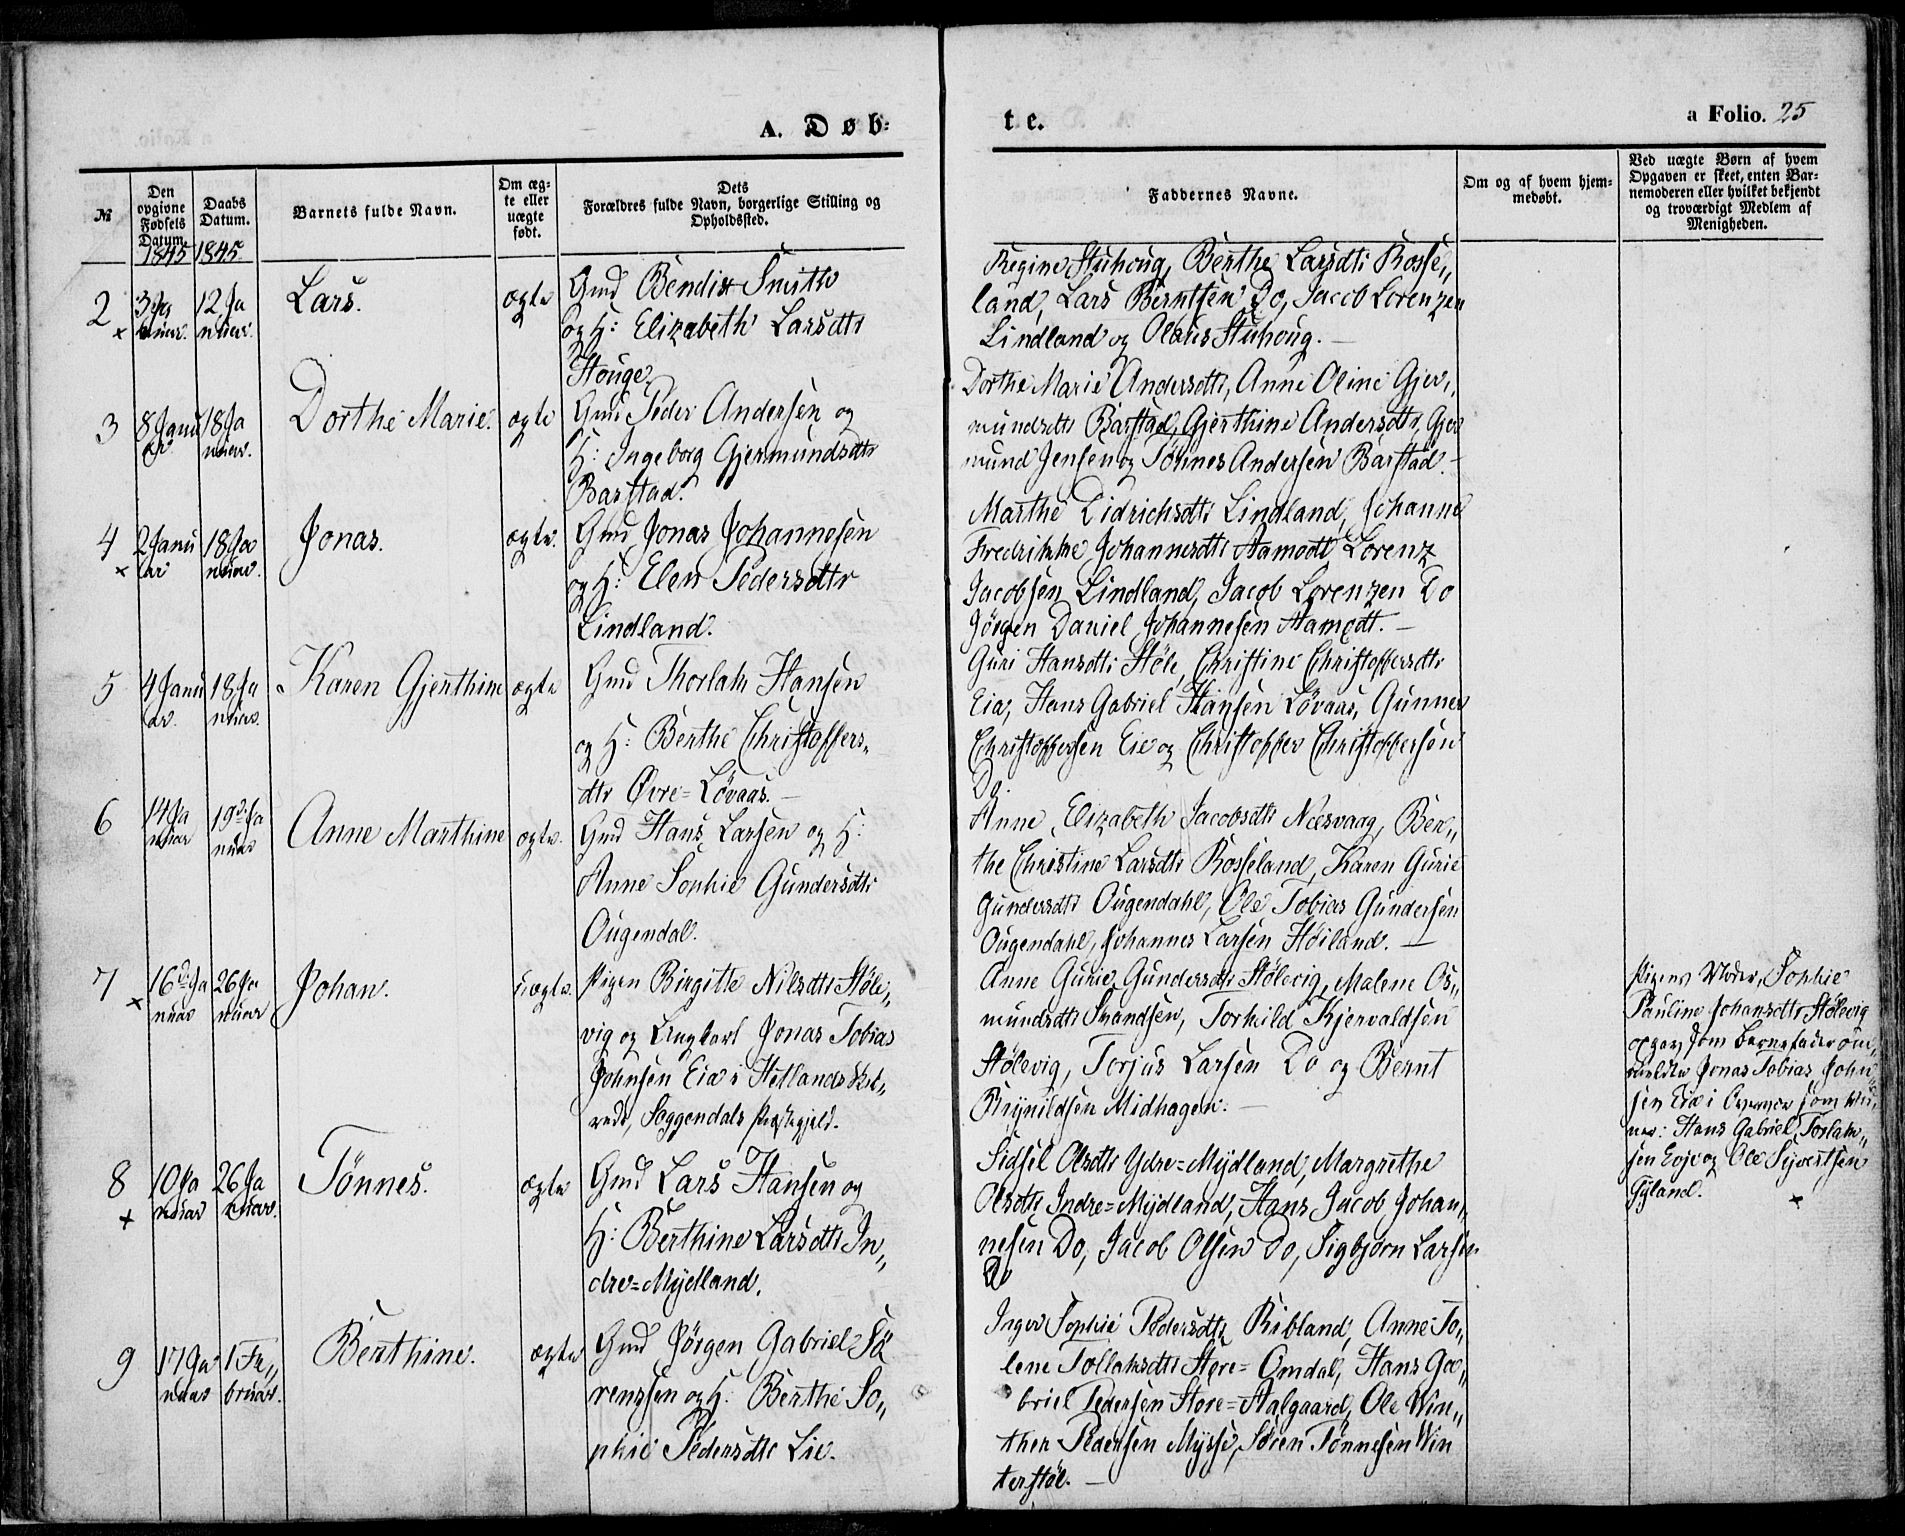 A. Døb-
te.
a Folio. 25
№
Den opgivne Fødsels Datum.
Daabs Datum.
Barnets fulde Navn.
Om ægte eller uægte født.
Dets
Forældres fulde Navn, borgerlige Stilling og
Opholdssted.
Faddernes Navne.
Om og af hvem hjem-
medøbt.
Ved uægte Børn af hvem
Opgaven er skeet, enten Bar-
nemoderen eller hvilket bekjendt
og troværdigt Medlem af
Menigheden.
1845 1845.
2 3 Ja 12 Ja Lars. ægte Gmd Bendix Smith
nuar. nuar. og H: Elizabeth Larsdtr
Houge.
Regine Stuhoug, Berthe Larsdtr Rosse„
land, Lars Berntsen Do, Jacob Lorenzen
Lindland og Olaus Stuhoug. —
3 8 Janu 18 Ja Dorthe Marie. ægte Gmd Peder Andersen og
ar nuar. H: Ingeborg Gjermundsdtr
Barstad.
Dorthe Marie Andersdtr, Anne Oline Gjer„
mundsdtr Barstad, Gjerthine Andersdtr, Gjer
mund Jensen og Tønnes Andersen Barstad. —
4 2 Janu 18 Ja Jonas. ægte. Gmd Jonas Johannesen
ar nuar. og H: Elen Pedersdtr
Lindland.
Marthe Didrichsdtr Lindland, Johanne
Fredrikke Johannesdtr Aamodt Lorenz
Jacobsen Lindland, Jacob Lorenzen Do
Jørgen Daniel Johannesen Aamodt. —
5 4 Janu 18 Ja Karen Gjerthine ægte Gmd Thorlak Hansen
ar. nuar. og H: Berthe Christoffers„
dtr Øvre=Løvaas. —
Guri Hansdtr Støle, Christine Christoffersdtr
Eia, Hans Gabriel Hansen Løvaas, Gunner
Christoffersen Eie og Christoffer Christoffersen
Do.
6 14 Ja 19d Ja Anne Marthine ægte. Gmd Hans Larsen og H:
nuar nuar Anne Sophie Gundersdtr
Ougendal.
Anne Elizabeth Jacobsdtr Næsvaag, Ber„
the Christine Larsdtr Rosseland, Karen Gurie
Gundersdtr Ougendahl, Ole Tobias Gundersen
Ougendahl, Johannes Larsen Høiland. —
7 16d Ja 26 Ja Johan. uægte. Pigen Birgitte Nilsdtr Støle„
nuar nuar vig og Ungkarl Jonas Tobias
Johnsen Eia i Hetlands
Soggendals Præstegjeld.
Anne Gurie Gundersdtr Stølevig, Malene Os„
mundsdtr Strandsen, Torkild Kjervaldsen
Stølevig, Torjus Larsen Do og Bernt
Brynildsen Midhagen. —
Pigens Moder, Sophie
Pauline Johansdtr Stølevig
opgav som Barnefader om„
meldte Jonas Tobias John„
sen Eia i
Hans Gabriel Torlak„
sen Evje og Ole Sivertsen
Gyland.
8 10 Ja 26 Ja Tønnes. ægte Gmd Lars Hansen og
nuar nuar. H: Berthine Larsdtr In„
dre=Mydland.
Sidsel Olsdtr Ydre=Mydland, Margrethe
Olsdtr Indre=Mydland, Hans Jacob Johan„
nesen Do, Jacob Olsen Do, Sigbjørn Larsen
Do
9 17 Ja 1 Fe„ Berthine. ægte Gmd Jørgen Gabriel Sø
nuar bruar. renssen og H: Berthe So„
phie Pedersdtr Lie.
Inger Sophie Pedersdtr Ribland, Anne To„
lene Tollaksdtr Store=Omdal, Hans Ga„
briel Pedersen Store=Aalgaard, Ole Win„
ther Pedersen Mysse, Søren Tønnesen Win
terstøl. —